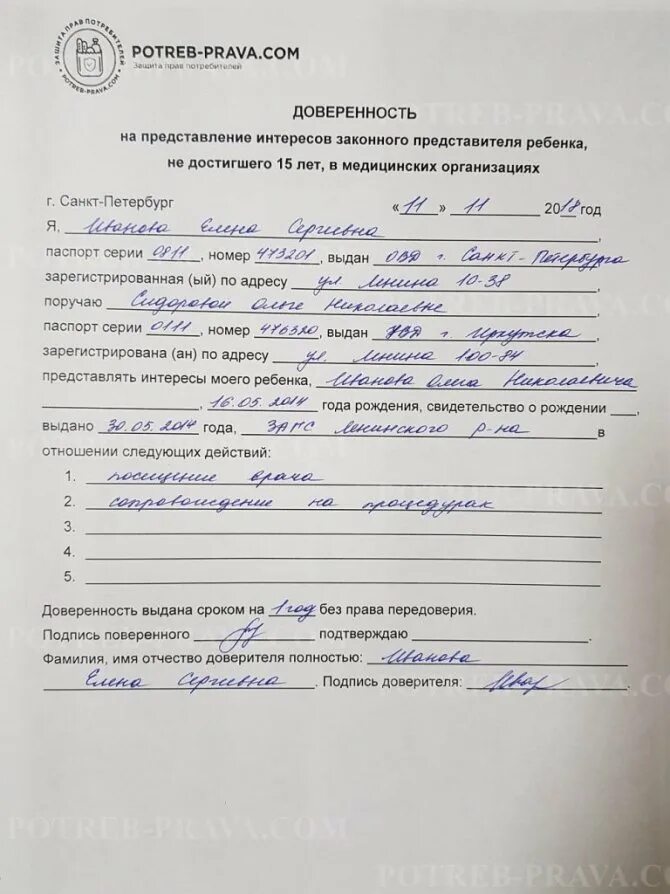 ЗАЩИТА ПРАВ ПОТРЕБИТЕЛЕЙ
POTREB-PRAVA.COM
POTREB-PRAVA.COM
Защита прав потребителей
ДОВЕРЕННОСТЬ
на представление интересов законного представителя ребенка,
не достигшего 15 лет, в медицинских организациях
г. Санкт-Петербург «11» 11 2018 год
Я, Иванова Елена Сергиевна,
паспорт серии 0811, номер 473201, выдан ОВД г. Санкт-Петербурга
зарегистрированная (ый) по адресу ул. Ленина 10-38,
поручаю Сидоровой Ольге Николаевне
паспорт серии 0111, номер 476320, выдан г. Иркутска
зарегистрирована (ан) по адресу ул. Ленина 100-84,
представлять интересы моего ребенка, Иванова Олега Николаевича
, 16.05.2014 года рождения, свидетельство о рождении ,
выдано 30.05.2014 года, ЗАГС Ленинского р-на в
отношении следующих действий:
1. посещение врача
2. сопровождение на процедурах
3.
4.
5.
Доверенность выдана сроком на 1 год без права передоверия.
Подпись поверенного подтверждаю .
Фамилия, имя отчество доверителя полностью: Иванова
Елена Сергиевна. Подпись доверителя: .
POTREB-PRAVA.COM